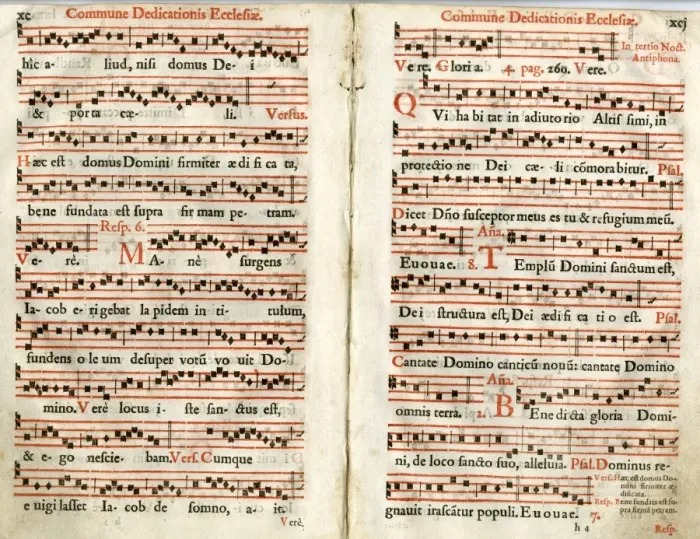 xc Commune Dedicationis Ecclesiæ.
hîc a- liud, nisi domus De- i
& porta cæ- li. Versus.
Hæc est domus Domini firmiter ædi fi ca ta,
bene fundata est supra fir mam pe- tram.
Resp. 6.
Ve- rè. MA- nè surgens
Ia- cob e- ri gebat lapidem in ti- tulum,
fundens o le um desuper votũ vo uit Do-
mino. Verè locus i- ste san- ctus est,
& e- go nescie- bam. Vers. Cumque
e uigi lasset Ia- cob de somno, a- it.
Verè.
Commune Dedicationis Ecclesiæ. xcj
In tertio Noct.
Antiphona.
Ve re. Glori a. 4. pag. 260. Vere.
QVi ha bi tat in adiuto rio Altis simi, in
protectio ne Dei cæ- li cõmora bitur. Psal.
Dicet Dño susceptor meus es tu & refugium meũ.
Aña.
Euouae. 8. TEmplũ Domini sanctum est,
De i structura est, Dei ædi fi ca ti o est. Psal.
Cantate Domino canticũ nouũ: cantate Domino
Aña.
omnis terra. 2. BEne di cta gloria Domi-
ni, de loco sancto suo, alleluia. Psal. Dominus re-
Vers. Hæc est domus Do-
mini firmiter æ-
dificata.
Resp. Bene fundata est su-
pra firmã petram.
gnauit irascãtur populi. Euouae. 7.
h 4 Resp.